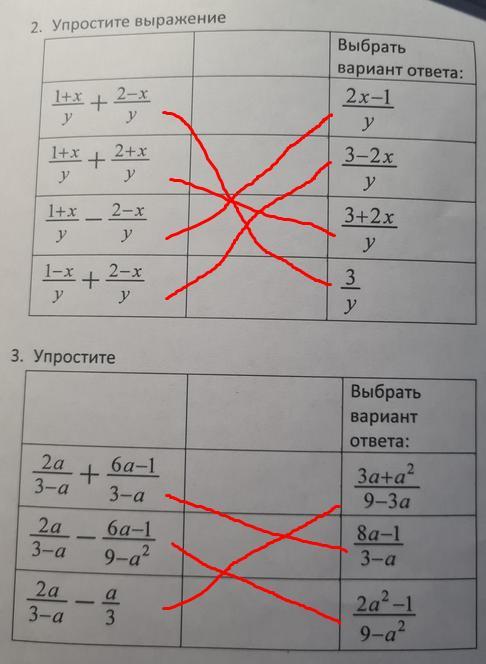 2. Упростите выражение
Выбрать
вариант ответа:
(1+x)/y + (2−x)/y
(2x−1)/y
(1+x)/y + (2+x)/y
(3−2x)/y
(1+x)/y − (2−x)/y
(3+2x)/y
(1−x)/y + (2−x)/y
3/y
3. Упростите
Выбрать
вариант
ответа:
2a/(3−a) + (6a−1)/(3−a)
(3a+a²)/(9−3a)
2a/(3−a) − (6a−1)/(9−a²)
(8a−1)/(3−a)
2a/(3−a) − a/3
(2a²−1)/(9−a²)